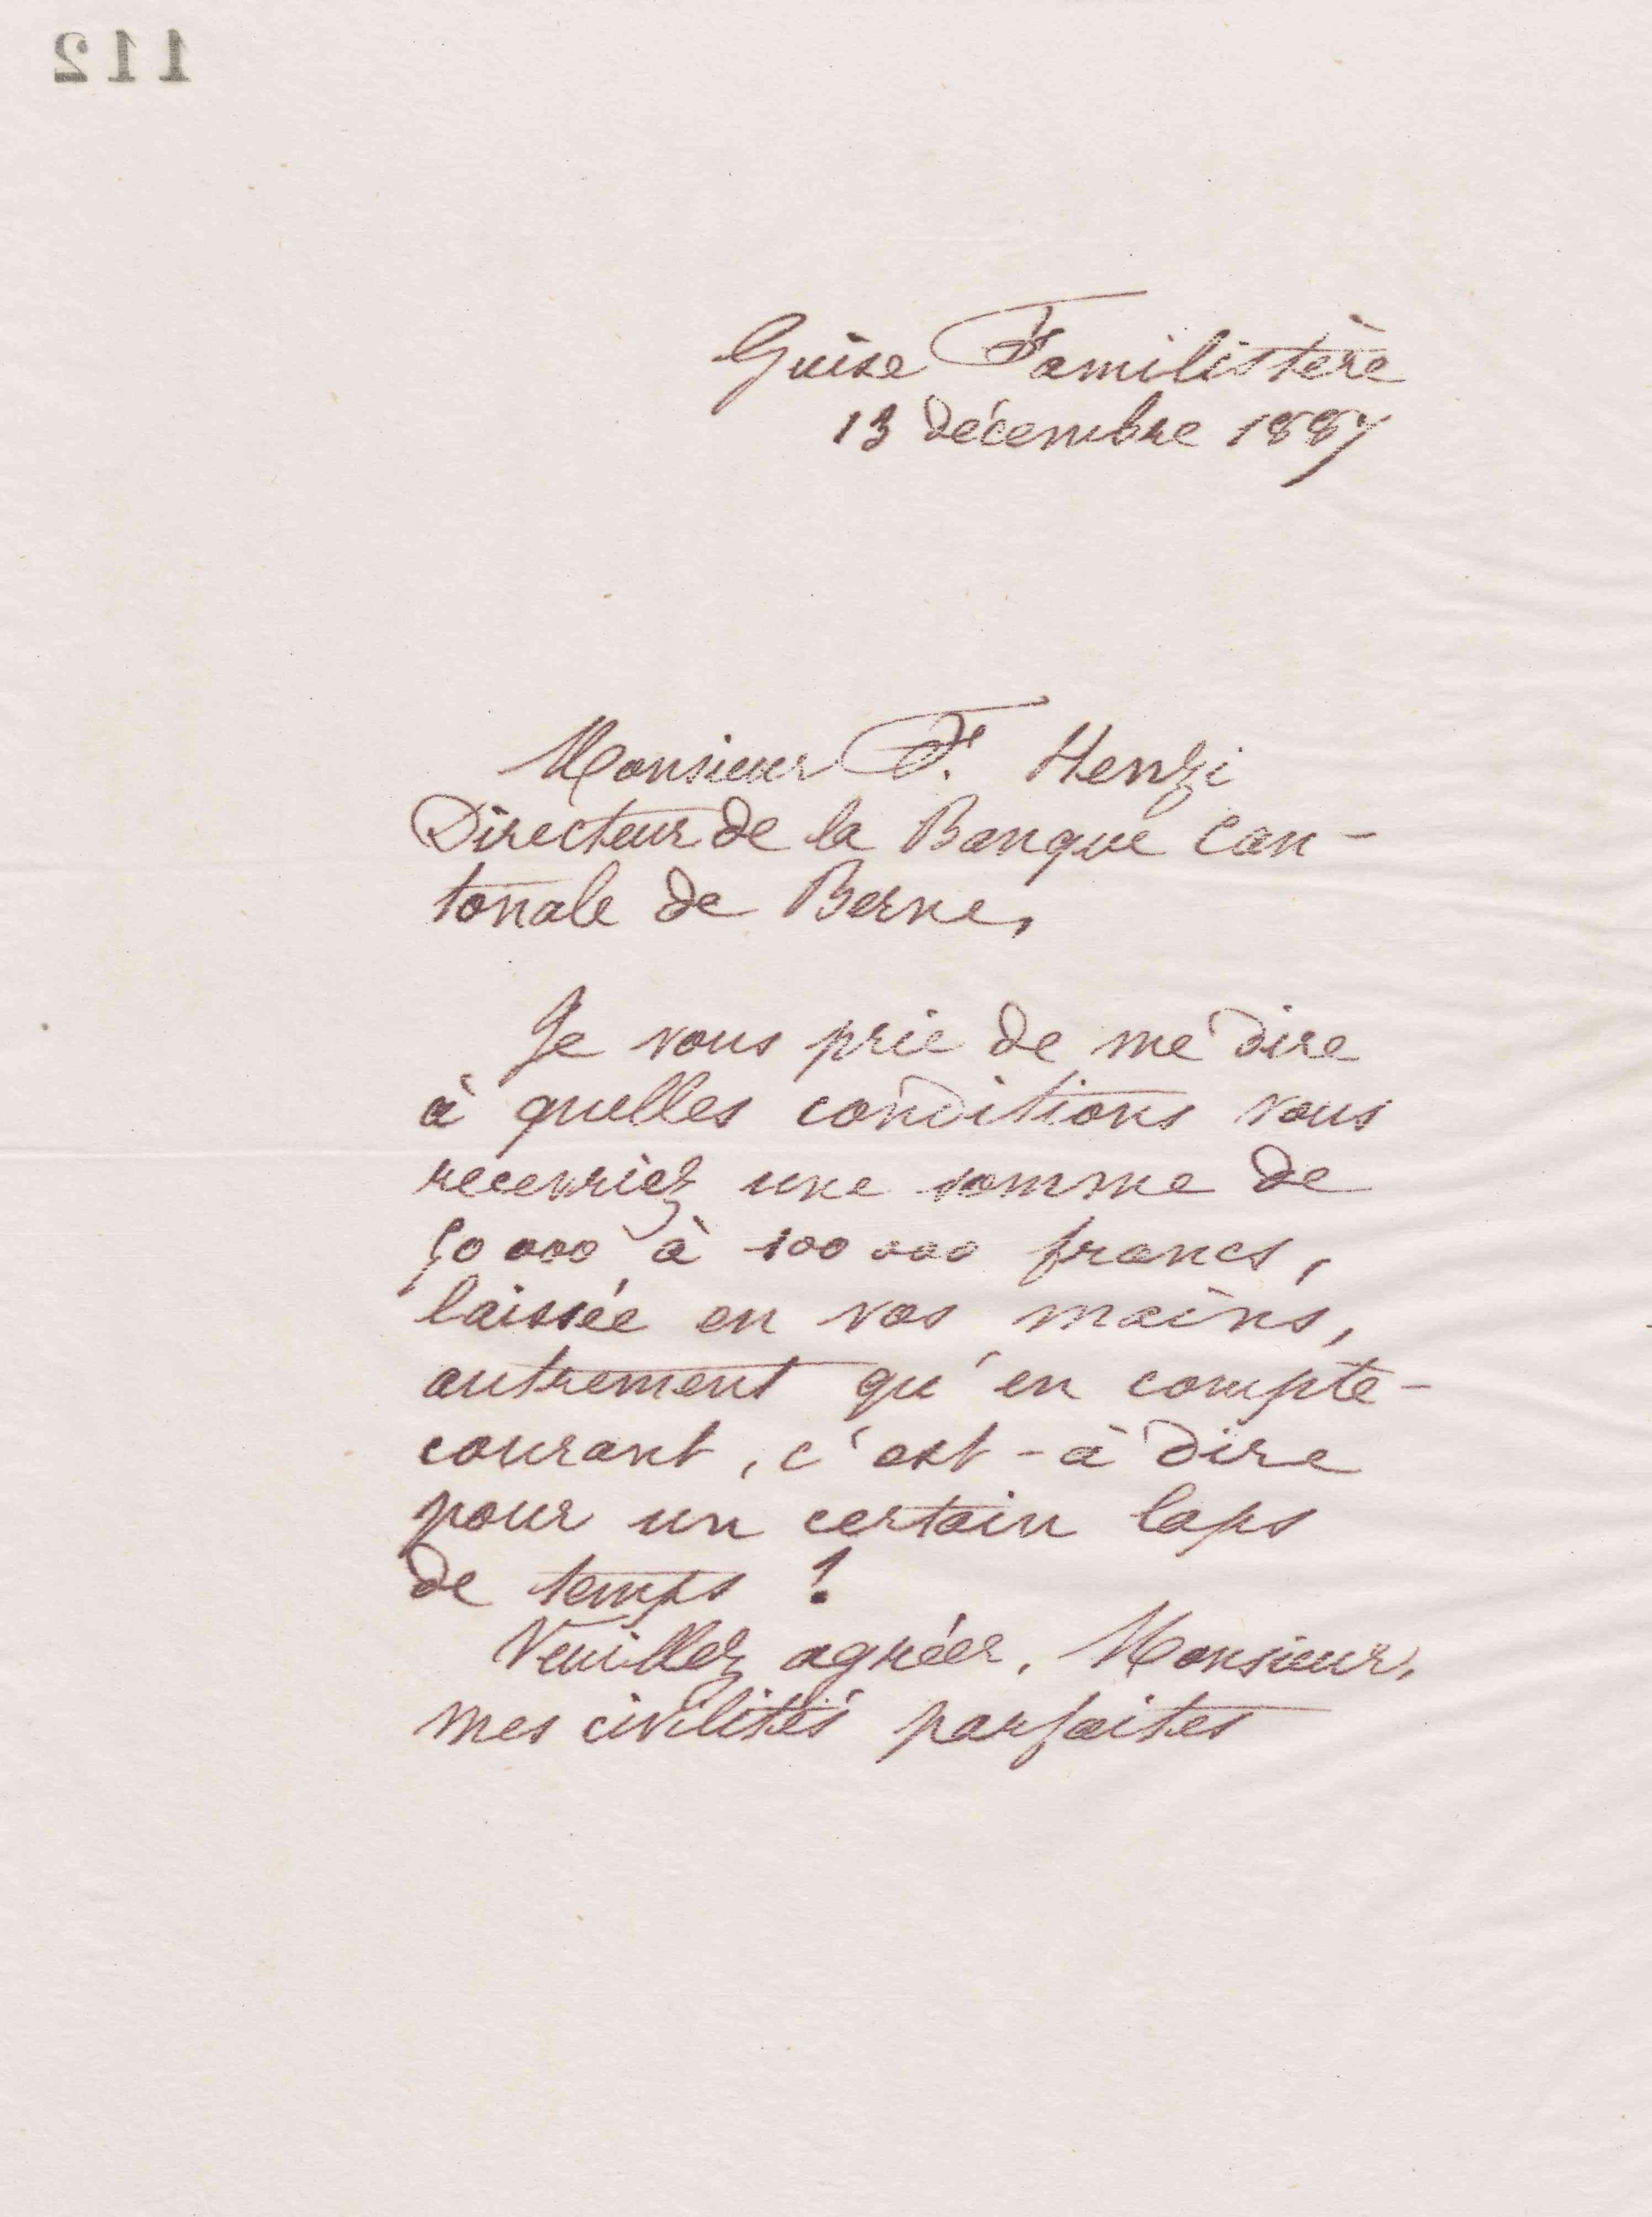 112
Guise Familistère
13 décembre 1887
Monsieur F. Henzi
Directeur de la Banque Can-
tonale de Berne,
Je vous prie de me dire
à quelles conditions vous
recevriez une somme de
50 000 à 100 000 francs,
laissée en vos mains,
autrement qu'en compte-
courant, c'est-à dire
pour un certain laps
de temps ?
Veuillez agréer, Monsieur,
mes civilités parfaites